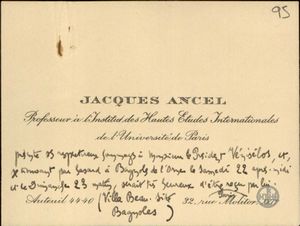 95
JACQUES ANCEL
Professeur à l'Institut des Hautes Etudes Internationales
de l'Université de Paris
présente ses respectueux hommages à Monsieur le Président Vénisélos, et,
se trouvant par hasard à Bagnoles de l'Orne le Samedi 22 après-midi
et le Dimanche 23 matin, serait très heureux d'être reçu par lui.
(Villa Beau-Site
Bagnoles)
AUTEUIL 44-40
32, rue Molitor